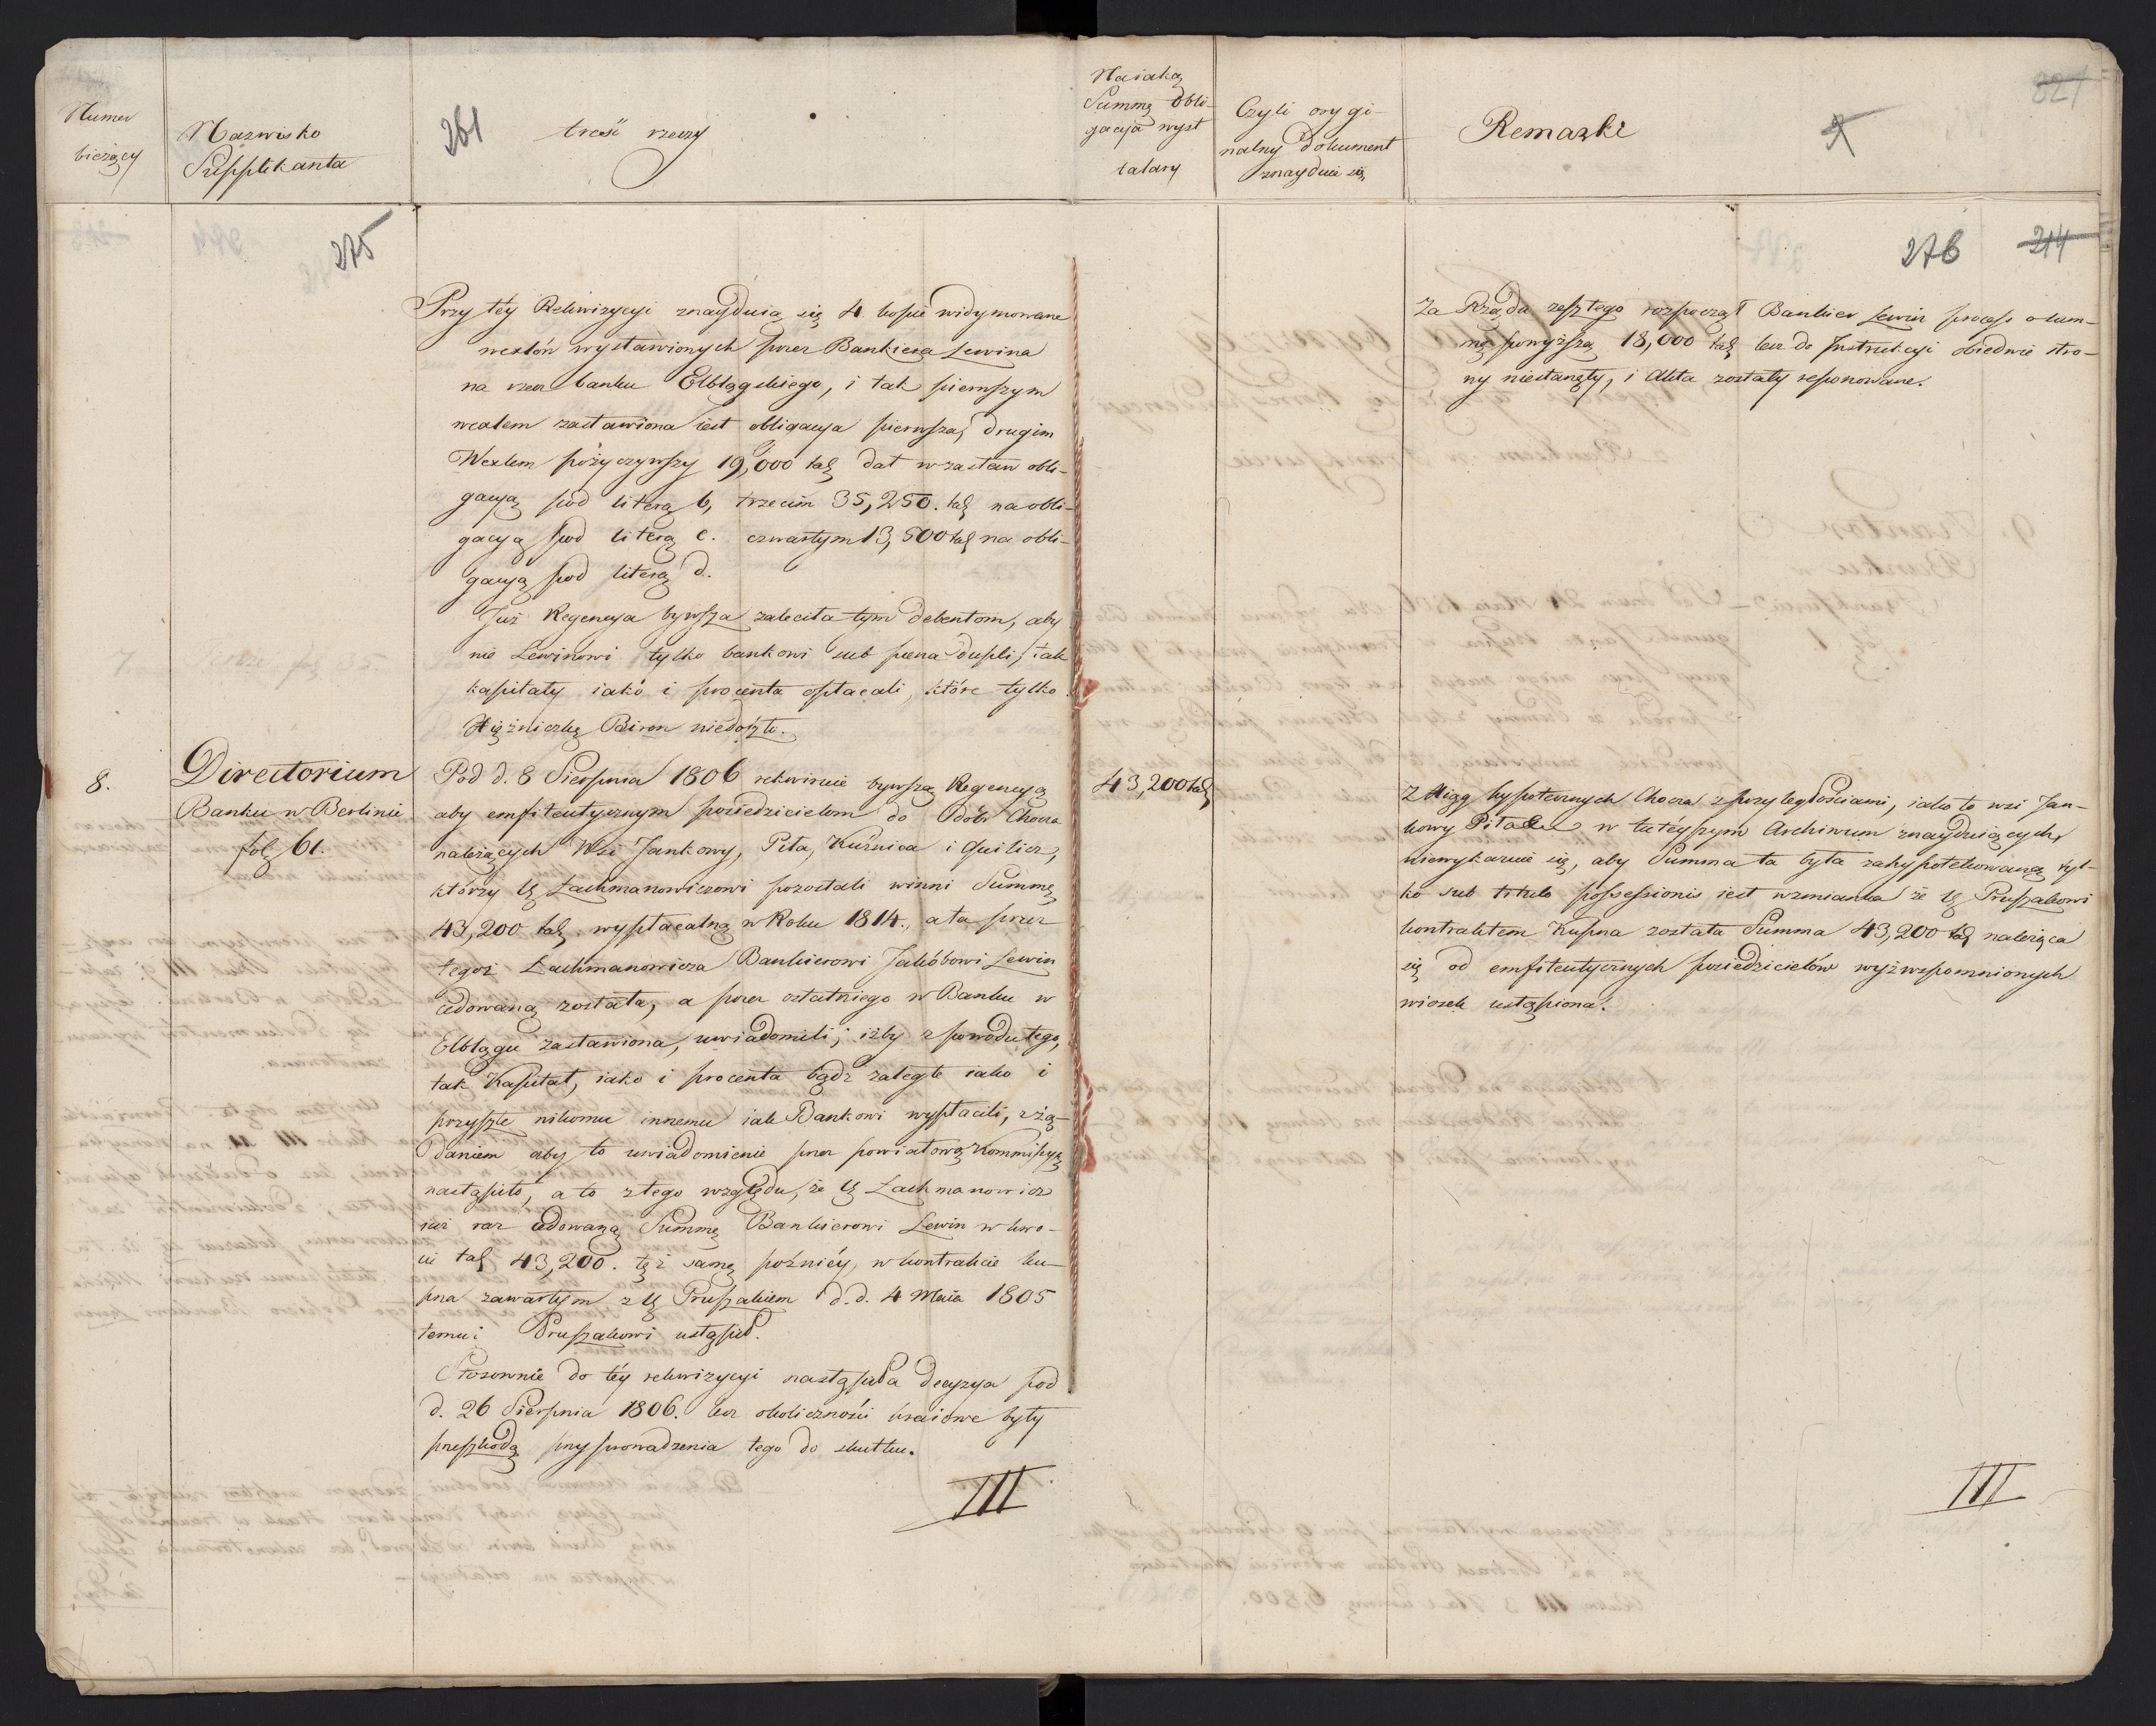 Numer
bieżący
Nazwisko
Supplikanta
261
treść rzeczy
Naiaką
Summę Obli-
gacyia wyst
talary
Czyli orygi-
nalny dokument
znayduie się
Remarki
321
275
276
214
Przy téy Rekwizycyi znayduią się 4 kopie widymowane
wexlów wystawionych przez Bankiera Lewina
na rzecz banku Elblągskiego, i tak pierwszym
wexlem zastawiona iest obligacya pierwsza, drugim
Wexlem pożyczywszy 19,000 tal. dał w zastaw obli-
gacyą pod literą b, trzecim 35,250. tal. na obli-
gacyą pod literą c. czwartym 13,500 tal. na obli-
gacyą pod literą d.
Już Regencya bywsza zaleciła tym debentom, aby
nie Lewinowi tylko bankowi sub pæna dupli, tak
kapitały iako i procenta opłacali, które tylko
Xiężniczkę Biron niedoszło.
8.
Directorium
Banku w Berlinie
fol. 61.
Pod d. 8 Sierpnia 1806 rekwiruie bywszą Regencyą
aby emfiteutycznym posiedzicielom do Dóbr Chocza
należących Wsi Jankowy, Piła, Kuźnica i Quilicz,
którzy Ur. Lachmanowiczowi pozostali winni Summę
43,200 tal. wypłacalną w Roku 1814., a ta przez
tegoż Lachmanowicza Bankierowi Jakóbowi Lewin
cedowaną została, a przez ostatniego w Banku w
Elblągu zastawiona, uwiadomili, iżby z powodu tego,
tak Kapitał, iako i procenta bądz zaległe iako i
przyszłe nikomu innemu iak Bankowi wypłacili, z żą-
daniem aby to uwiadomienie przez powiatową Kommissyą
nastąpiło, a to z tego względu, że Ur. Lachmanowicz
iuż raz cedowaną Summę Bankierowi Lewin w kwo-
cie tal. 43,200. też samą poźniéy, w kontrakcie ku-
pna zawartym z Ur. Pruszakiem d. d. 4 Maia 1805
temuż Pruszakowi ustąpił.
Stosownie do téy rekwizycyi nastąpiła decyzya pod
d. 26 Sierpnia 1806. lecz okoliczności kraiowe były
przeszkodą przyprowadzenia tego do skutku.
III
43,200 tal.
Za Rządu zeszłego rozpoczął Bankier Lewin process o sum-
mę powyższą 18,000 tal. lecz do Instrukcyi obiedwie stro-
ny niestanęły, i Akta zostały reponowane.
Z Xiąg hypotecznych Chocza z przyległościami, iako to wsi Jan-
kowy Piła &c w tutéyszym Archiwum znayduiących,
niewykazuie się, aby Summa ta była zahypotekowaną tyl-
ko sub titulo possessionis iest wzmianka że Ur. Pruszakowi
kontraktem Kupna została Summa 43,200 tal. należąca
się od emfiteutycznych posiedzicielów wyżwspomnionych
wiosek ustąpiona.
III